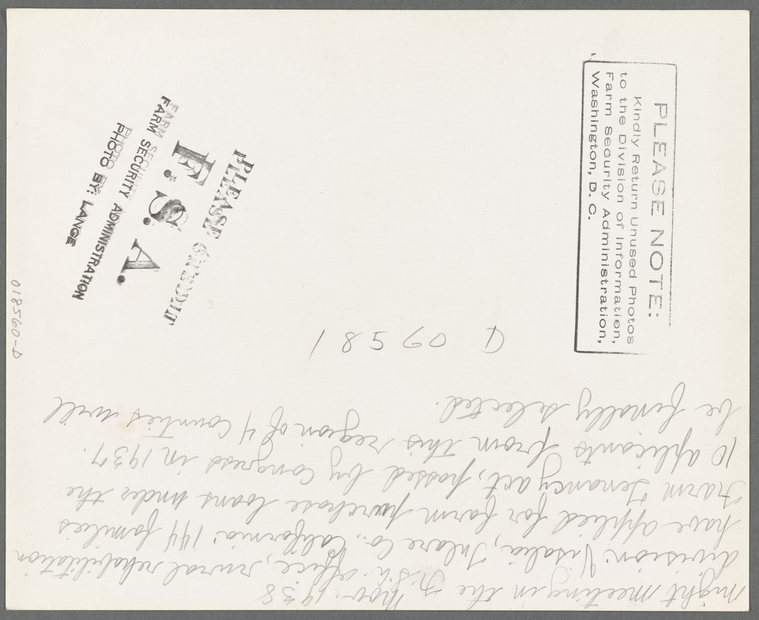 PLEASE NOTE:
Kindly Return Unused Photos
to the Division of Information,
Farm Security Administration,
Washington, D. C.
PLEASE CREDIT
F.S.A.
FARM SECURITY ADMINISTRATION
PHOTO BY: LANGE
018560-D
Nov. 1938
night meeting in the F.S.A. office, rural rehabilitation
division. Visalia, Tulare Co. California. 144 families
have applied for farm purchase loans under the
Farm Tenancy act, passed by Congress in 1937.
10 aplicants from this region of 4 Counties will
be finally selected.